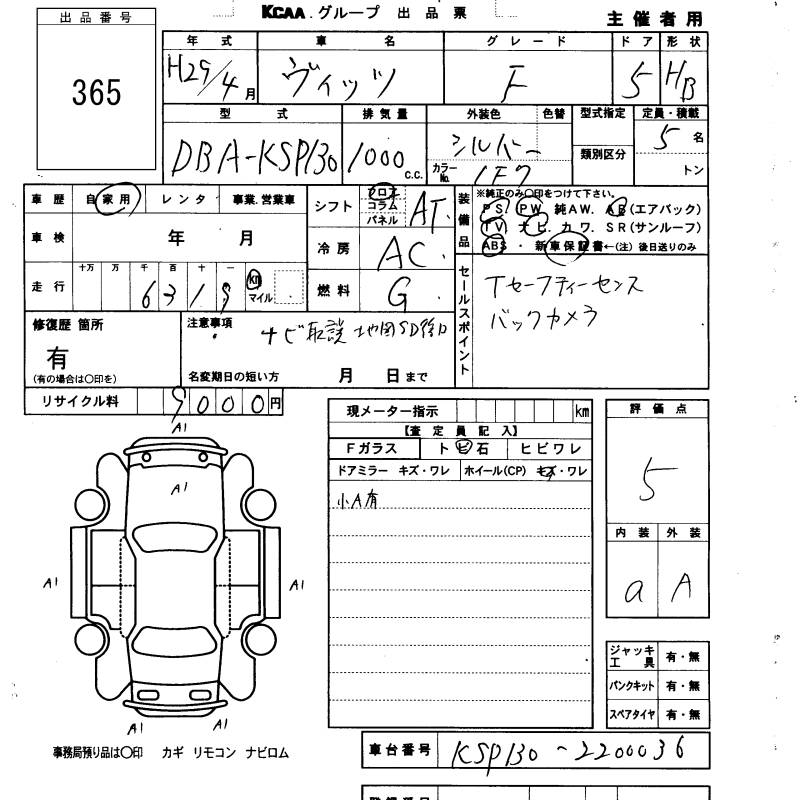 KCAA グループ 出品票
主催者用
出品番号
365
年式 車名 グレード ドア 形状
H29/4月 ヴィッツ F 5 HB
型式 排気量 外装色 色替 型式指定 定員・積載
DBA-KSP130 1000 c.c. シルバー 5名
カラーNo. 1F7 類別区分 トン
車歴 自家用 レンタ 事業.営業車
シフト フロネ コラム パネル AT
装備品 ※純正のみ○印をつけて下さい。
PS PW 純AW. AB(エアバック)
TV ナビ. カワ. SR(サンルーフ)
ABS ・ 新車保証書←(注) 後日送りのみ
車検 年 月
冷房 AC
走行 十万 万 千 百 十 一
6319 km マイル
燃料 G
セールスポイント
Tセーフティーセンス
バックカメラ
修復歴 箇所
有
(有の場合は○印を)
注意事項
ナビ取説 地図SD
名変期日の短い方 月 日まで
リサイクル料 9000円
現メーター指示 km
【査定員記入】
Fガラス トビ石 ヒビワレ
ドアミラー キズ・ワレ ホイール(CP) キズ・ワレ
小A有
評価点
5
内装 外装
a A
A1
A1
A1 A1
A1 A1
ジャッキ工具 有・無
パンクキット 有・無
スペアタイヤ 有・無
事務局預り品は○印 カギ リモコン ナビロム
車台番号 KSP130-2200036